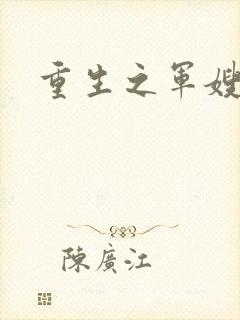 重生之軍嫂
陳廣江